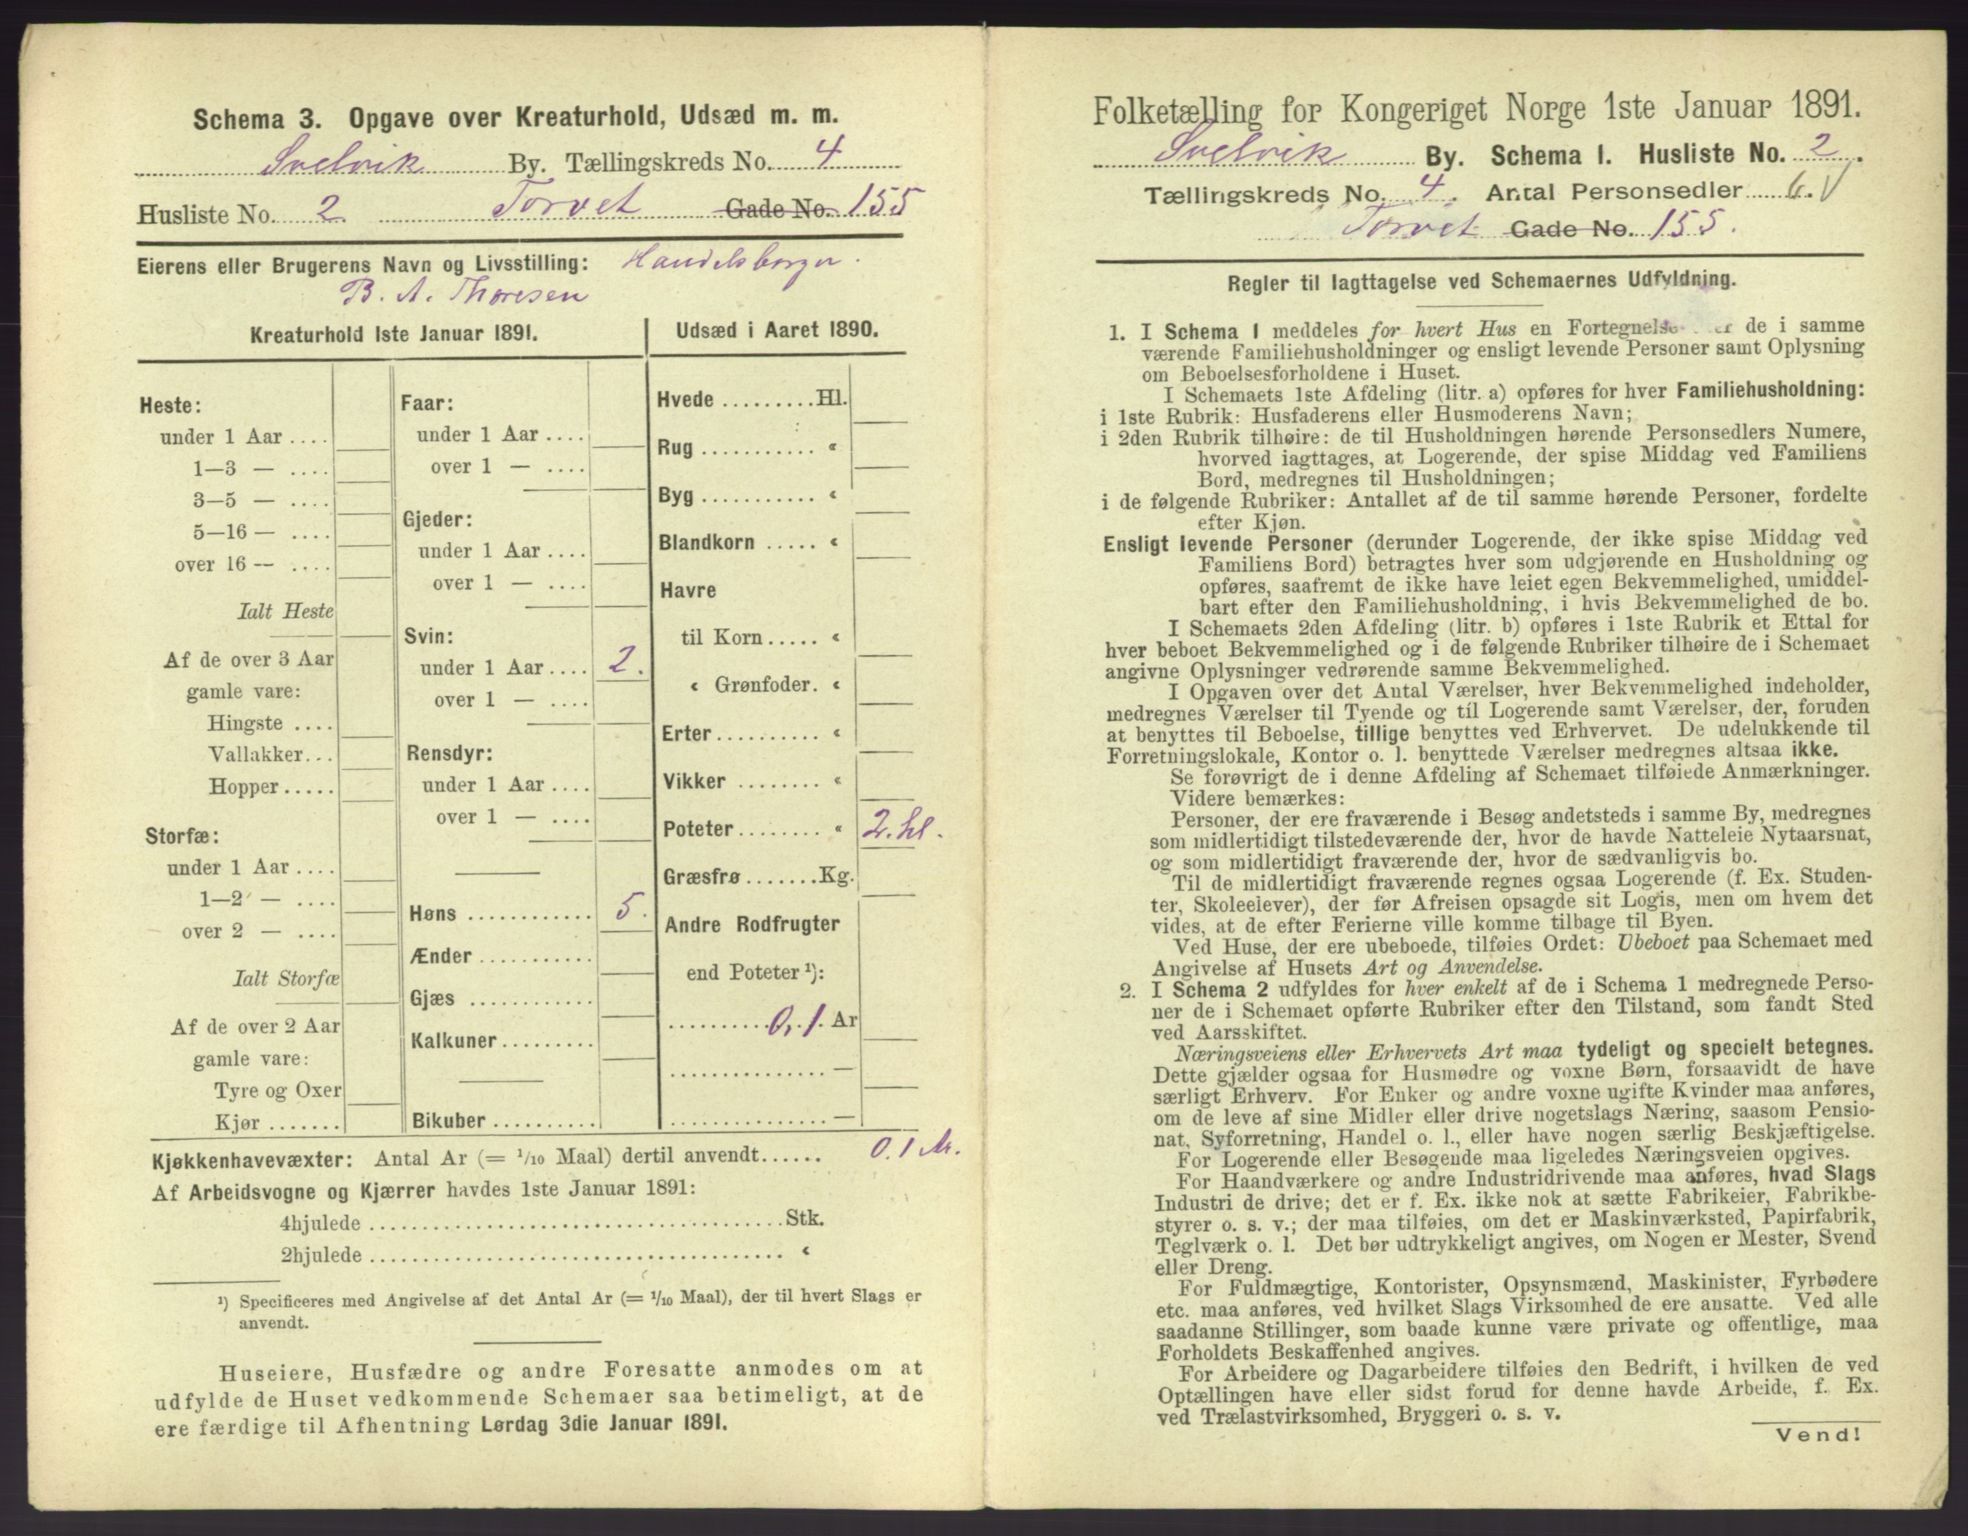 Schema 3. Opgave over Kreaturhold, Udsæd m. m.
Svelvik By. Tællingskreds No. 4
Husliste No. 2 Torvet Gade No. 155
Eierens eller Brugerens Navn og Livsstilling: Handelsborger.
B. A. Thoresen
Kreaturhold 1ste Januar 1891.
Heste:
under 1 Aar ....
1—3 — ....
3—5 — ....
5-16 — ....
over 16 — ....
Ialt Heste
Af de over 3 Aar
gamle vare:
Hingste ....
Vallakker...
Hopper.....
Storfæ:
under 1 Aar ....
1—2 — ....
over 2 — ....
Ialt Storfæ
Af de over 2 Aar
gamle vare:
Tyre og Oxer
Kjør .......
Faar:
under 1 Aar ....
over 1 — ....
Gjeder:
under 1 Aar ....
over 1 — ....
Svin:
under 1 Aar .... 2.
over 1 — ....
Rensdyr:
under 1 Aar ....
over 1 — ....
Høns ............ 5.
Ænder ...........
Gjæs ............
Kalkuner.........
Bikuber ..........
Udsæd i Aaret 1890.
Hvede .........Hl.
Rug ........... "
Byg ........... "
Blandkorn ..... "
Havre
til Korn..... "
" Grønfoder. "
Erter.......... "
Vikker ........ "
Poteter........ " 2. hl.
Græsfrø.......Kg.
Andre Rodfrugter
end Poteter ¹):
..........0,1 Ar
............... —
............... —
Kjøkkenhavevæxter: Antal Ar (= 1/10 Maal) dertil anvendt...... 0.1 Ar.
Af Arbeidsvogne og Kjærrer havdes 1ste Januar 1891:
4hjulede ........................................Stk.
2hjulede ........................................ "
¹) Specificeres med Angivelse af det Antal Ar (= 1/10 Maal), der til hvert Slags er
anvendt.
Huseiere, Husfædre og andre Foresatte anmodes om at
udfylde de Huset vedkommende Schemaer saa betimeligt, at de
ere færdige til Afhentning Lørdag 3die Januar 1891.
Folketælling for Kongeriget Norge 1ste Januar 1891.
Svelvik By. Schema I. Husliste No. 2.
Tællingskreds No. 4. Antal Personsedler 6. V
Torvet Gade No. 155.
Regler til Iagttagelse ved Schemaernes Udfyldning.
1. I Schema 1 meddeles for hvert Hus en Fortegnelse de i samme
værende Familiehusholdninger og ensligt levende Personer samt Oplysning
om Beboelsesforholdene i Huset.
I Schemaets 1ste Afdeling (litr. a) opføres for hver Familiehusholdning:
i 1ste Rubrik: Husfaderens eller Husmoderens Navn;
i 2den Rubrik tilhøire: de til Husholdningen hørende Personsedlers Numere,
hvorved iagttages, at Logerende, der spise Middag ved Familiens
Bord, medregnes til Husholdningen;
i de følgende Rubriker: Antallet af de til samme hørende Personer, fordelte
efter Kjøn.
Ensligt levende Personer (derunder Logerende, der ikke spise Middag ved
Familiens Bord) betragtes hver som udgjørende en Husholdning og
opføres, saafremt de ikke have leiet egen Bekvemmelighed, umiddel-
bart efter den Familiehusholdning, i hvis Bekvemmelighed de bo.
I Schemaets 2den Afdeling (litr. b) opføres i 1ste Rubrik et Ettal for
hver beboet Bekvemmelighed og i de følgende Rubriker tilhøire de i Schemaet
angivne Oplysninger vedrørende samme Bekvemmelighed.
I Opgaven over det Antal Værelser, hver Bekvemmelighed indeholder,
medregnes Værelser til Tyende og til Logerende samt Værelser, der, foruden
at benyttes til Beboelse, tillige benyttes ved Erhvervet. De udelukkende til
Forretningslokale, Kontor o. l. benyttede Værelser medregnes altsaa ikke.
Se forøvrigt de i denne Afdeling af Schemaet tilføiede Anmærkninger.
Videre bemærkes:
Personer, der ere fraværende i Besøg andetsteds i samme By, medregnes
som midlertidigt tilstedeværende der, hvor de havde Natteleie Nytaarsnat,
og som midlertidigt fraværende der, hvor de sædvanligvis bo.
Til de midlertidigt fraværende regnes ogsaa Logerende (f. Ex. Studen-
ter, Skoleelever), der før Afreisen opsagde sit Logis, men om hvem det
vides, at de efter Ferierne ville komme tilbage til Byen.
Ved Huse, der ere ubeboede, tilføies Ordet: Ubeboet paa Schemaet med
Angivelse af Husets Art og Anvendelse.
2. I Schema 2 udfyldes for hver enkelt af de i Schema 1 medregnede Perso-
ner de i Schemaet opførte Rubriker efter den Tilstand, som fandt Sted
ved Aarsskiftet.
Næringsveiens eller Erhvervets Art maa tydeligt og specielt betegnes.
Dette gjælder ogsaa for Husmødre og voxne Børn, forsaavidt de have
særligt Erhverv. For Enker og andre voxne ugifte Kvinder maa anføres,
om de leve af sine Midler eller drive nogetslags Næring, saasom Pensio-
nat, Syforretning, Handel o. l., eller have nogen særlig Beskjæftigelse.
For Logerende eller Besøgende maa ligeledes Næringsveien opgives.
For Haandværkere og andre Industridrivende maa anføres, hvad Slags
Industri de drive; det er f. Ex. ikke nok at sætte Fabrikeier, Fabrikbe-
styrer o. s. v.; der maa tilføies, om det er Maskinværksted, Papirfabrik,
Teglværk o. l. Det bør udtrykkeligt angives, om Nogen er Mester, Svend
eller Dreng.
For Fuldmægtige, Kontorister, Opsynsmænd, Maskinister, Fyrbødere
etc. maa anføres, ved hvilket Slags Virksomhed de ere ansatte. Ved alle
saadanne Stillinger, som baade kunne være private og offentlige, maa
Forholdets Beskaffenhed angives.
For Arbeidere og Dagarbeidere tilføies den Bedrift, i hvilken de ved
Optællingen have eller sidst forud for denne havde Arbeide, f. Ex.
ved Trælastvirksomhed, Bryggeri o. s. v.
Vend!